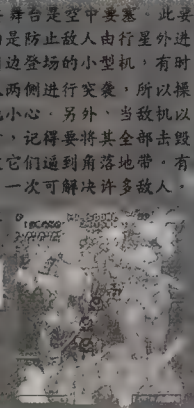 舞台是空中要塞。此要
是防止敌人由行星外进
边登场的小型机，有时
从两侧进行突袭，所以操
小心。另外、当敌机以
，记得要将其全部击毁
它们逼到角落地带。有
一次可解决许多敌人。